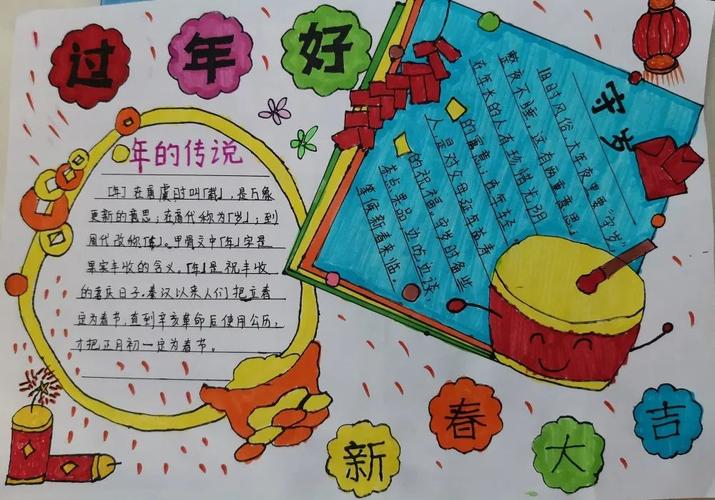 过年好
年的传说
「年」在唐虞时叫「载」,是万象
更新的意思;在商代称为「岁」;到
周代改称「年」。甲骨文中「年」字是
果实丰收的含义。「年」是祝丰收
的喜庆日子。秦汉以来人们把立春
定为春节,直到辛亥革命后使用公历,
才把正月初一定为春节。
守岁
旧时风俗,大年夜里要“守岁”
整夜不睡,这有两重意思。
在年长的人有珍惜光阴
的寓意;在年轻
人是对父母延年益寿
的祝福。守岁时备些
茶点果品,边吃边谈
等候新春来临。
新春大吉